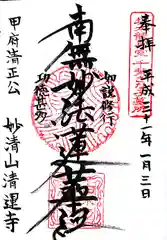 奉拝
平成三十一年一月三日
如説修行
南無妙法蓮華経
功徳甚多
甲府清正公
妙清山清運寺